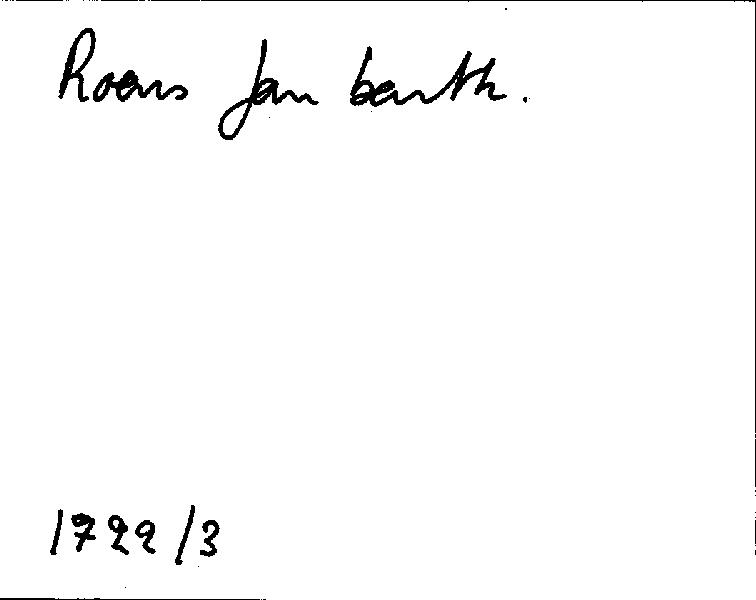 Roens Jan barth.
1722/3